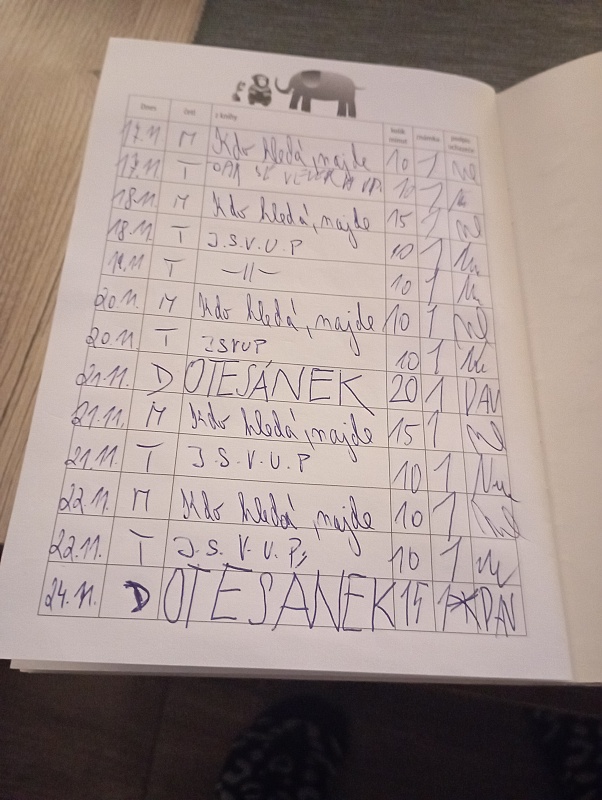 Dnes čtu z knihy kolik minut známka podpis
17.11 M Kdo hledá, najde 10 1
17.11 T 10 1
18.11 M Kdo hledá, najde 15 1
18.11. T J.S.V.U.P 10 1
19.11 T —||— 10 1
20 11. M Kdo hledá, najde 10 1
20 11. T JSVUP 10 1
21.11. D OTESÁNEK 20 1 DAV
21.11. M Kdo hledá, najde 15 1
21.11. T J.S.V.U.P 10 1
22.11. M Kdo hledá, najde 10 1
22.11. T J.S.V.U.P. 10 1
24.11. D OTESÁNEK 15 1 DAV